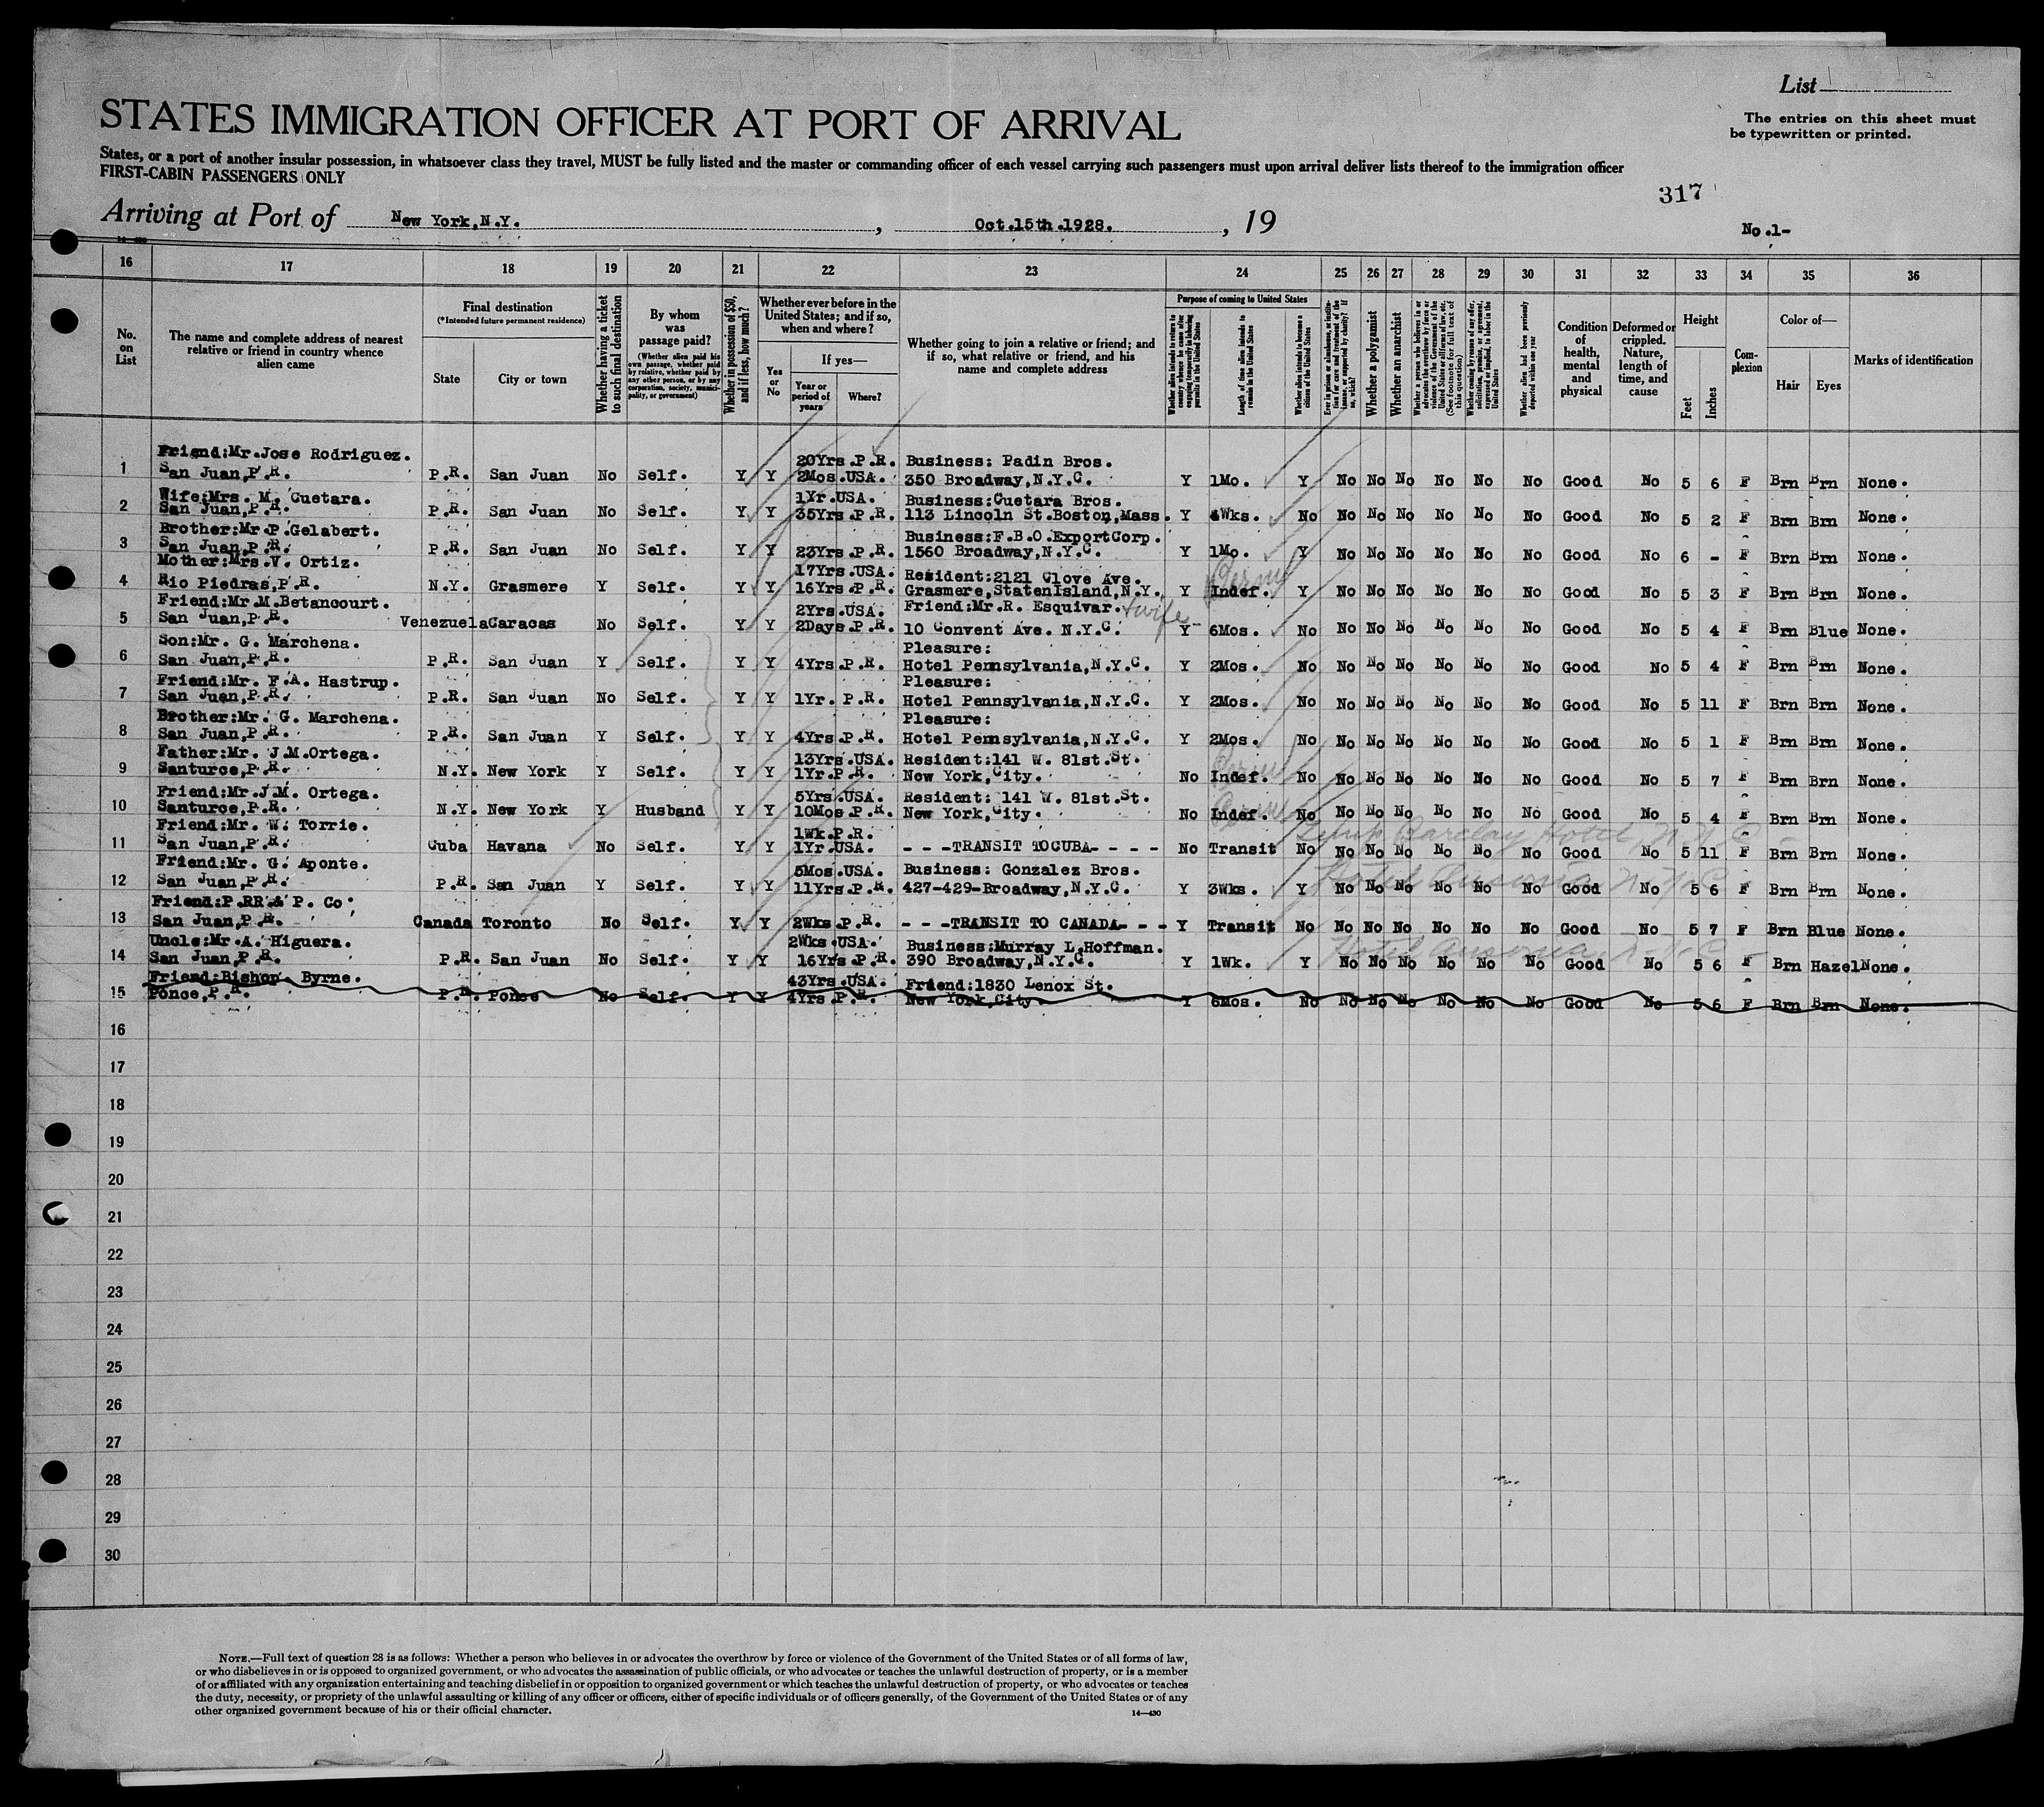 List
STATES IMMIGRATION OFFICER AT PORT OF ARRIVAL
The entries on this sheet must
be typewritten or printed.
States, or a port of another insular possession, in whatsoever class they travel, MUST be fully listed and the master or commanding officer of each vessel carrying such passengers must upon arrival deliver lists thereof to the immigration officer
FIRST-CABIN PASSENGERS ONLY
317
Arriving at Port of New York,N.Y. , Oct.15th.1928. , 19
No.1-
14-430
16 17 18 19 20 21 22 23 24 25 26 27 28 29 30 31 32 33 34 35 36
No. on List
The name and complete address of nearest relative or friend in country whence alien came
Final destination
(*Intended future permanent residence)
State
City or town
Whether having a ticket to such final destination
By whom was passage paid?
(Whether alien paid his own passage, whether paid by relative, whether paid by any other person, or by any corporation, society, municipality, or government)
Whether in possession of $50, and if less, how much?
Whether ever before in the United States; and if so, when and where?
Yes or No
If yes—
Year or period of years
Where?
Whether going to join a relative or friend; and if so, what relative or friend, and his name and complete address
Purpose of coming to United States
Whether alien intends to return to country whence he came after engaging temporarily in laboring pursuits in the United States
Length of time alien intends to remain in the United States
Whether alien intends to become a citizen of the United States
Ever in prison or almshouse, or institution for care and treatment of the insane, or supported by charity? If so, which?
Whether a polygamist
Whether an anarchist
Whether a person who believes in or advocates the overthrow by force or violence of the Government of the United States or all forms of law, etc. (See footnote for full text of this question)
Whether coming by reason of any offer, solicitation, promise, or agreement, expressed or implied, to labor in the United States
Whether alien had been previously deported within one year
Condition of health, mental and physical
Deformed or crippled. Nature, length of time, and cause
Height
Feet
Inches
Complexion
Color of—
Hair
Eyes
Marks of identification
Friend:Mr.Jose Rodriguez. 20Yrs.P.R. Business: Padin Bros.
1 San Juan,P.R. P.R. San Juan No Self. Y Y 2Mos.USA. 350 Broadway,N.Y.C. Y 1Mo. Y No No No No No No Good No 5 6 F Brn Brn None.
Wife:Mrs. M. Cuetara. 1Yr.USA. Business:Cuetara Bros.
2 San Juan,P.R. P.R. San Juan No Self. Y Y 35Yrs.P.R. 113 Lincoln St.Boston,Mass. Y 4Wks. No No No No No No No Good No 5 2 F Brn Brn None.
Brother:Mr.P.Gelabert. Business:F.B.O.ExportCorp.
3 San Juan,P.R. P.R. San Juan No Self. Y Y 23Yrs.P.R. 1560 Broadway,N.Y.C. Y 1Mo. Y No No No No No No Good No 6 - F Brn Brn None.
Mother:Mrs.V. Ortiz. 17Yrs.USA. Resident:2121 Clove Ave.
4 Rio Piedras,P.R. N.Y. Grasmere Y Self. Y Y 16Yrs.P.R. Grasmere,StatenIsland,N.Y. Y Indef. Y No No No No No No Good No 5 3 F Brn Brn None.
Friend:Mr.M.Betancourt. 2Yrs.USA. Friend:Mr.R. Esquivar. + wife
5 San Juan,P.R. Venezuela Caracas No Self. Y Y 2Days.P.R. 10 Convent Ave. N.Y.C. Y 6Mos. No No No No No No No Good No 5 4 F Brn Blue None.
Son:Mr. G. Marchena. Pleasure:
6 San Juan,P.R. P.R. San Juan Y Self. Y Y 4Yrs.P.R. Hotel Pennsylvania,N.Y.C. Y 2Mos. No No No No No No No Good No 5 4 F Brn Brn None.
Friend:Mr. F.A. Hastrup. Pleasure:
7 San Juan,P.R. P.R. San Juan No Self. Y Y 1Yr. P.R. Hotel Pennsylvania,N.Y.C. Y 2Mos. No No No No No No No Good No 5 11 F Brn Brn None.
Brother:Mr. G. Marchena. Pleasure:
8 San Juan,P.R. P.R. San Juan Y Self. Y Y 4Yrs.P.R. Hotel Pennsylvania,N.Y.C. Y 2Mos. No No No No No No No Good No 5 1 F Brn Brn None.
Father:Mr. J.M.Ortega. 13Yrs.USA. Resident:141 W. 81st.St.
9 Santurce,P.R. N.Y. New York Y Self. Y Y 1Yr.P.R. New York,City. No Indef. No No No No No No No Good No 5 7 F Brn Brn None.
Friend:Mr.J.M. Ortega. 5Yrs.USA. Resident: 141 W. 81st.St.
10 Santurce,P.R. N.Y. New York Y Husband Y Y 10Mos.P.R. New York,City. No Indef. No No No No No No No Good No 5 4 F Brn Brn None.
Friend:Mr. W. Torrie. 1Wk.P.R. Barclay Hotel, N.Y.C.
11 San Juan,P.R. Cuba Havana No Self. Y Y 1Yr.USA. - - -TRANSIT TOCUBA- - - - No Transit No No No No No No No Good No 5 11 F Brn Brn None.
Friend:Mr. G. Aponte. 5Mos.USA. Business: Gonzalez Bros. Hotel Ansonia N.Y.C.
12 San Juan,P.R. P.R. San Juan Y Self. Y Y 11Yrs.P.R. 427-429-Broadway,N.Y.C. Y 3Wks. Y No No No No No No Good No 5 6 F Brn Brn None.
Friend:P.RR.& P. Co.
13 San Juan,P.R. Canada Toronto No Self. Y Y 2Wks.P.R. - - -TRANSIT TO CANADA- - - Y Transit No No No No No No No Good No 5 7 F Brn Blue None.
Uncle:Mr.A. Higuera. 2Wks.USA. Business:Murray L,Hoffman. Hotel Ansonia N.Y.C.
14 San Juan,P.R. P.R. San Juan No Self. Y Y 16Yrs.P.R. 390 Broadway,N.Y.C. Y 1Wk. Y No No No No No No Good No 5 6 F Brn Hazel None.
Friend:Bishop Byrne. 43Yrs.USA. Friend:1830 Lenox St.
15 Ponce,P.R. P.R. Ponce No Self. Y Y 4Yrs.P.R. New York,City. Y 6Mos. No No No No No No No Good No 5 6 F Brn Brn None.
16
17
18
19
20
21
22
23
24
25
26
27
28
29
30
NOTE.—Full text of question 28 is as follows: Whether a person who believes in or advocates the overthrow by force or violence of the Government of the United States or of all forms of law,
or who disbelieves in or is opposed to organized government, or who advocates the assassination of public officials, or who advocates or teaches the unlawful destruction of property, or is a member
of or affiliated with any organization entertaining and teaching disbelief in or opposition to organized government or which teaches the unlawful destruction of property, or who advocates or teaches
the duty, necessity, or propriety of the unlawful assaulting or killing of any officer or officers, either of specific individuals or of officers generally, of the Government of the United States or of any
other organized government because of his or their official character.
14—430